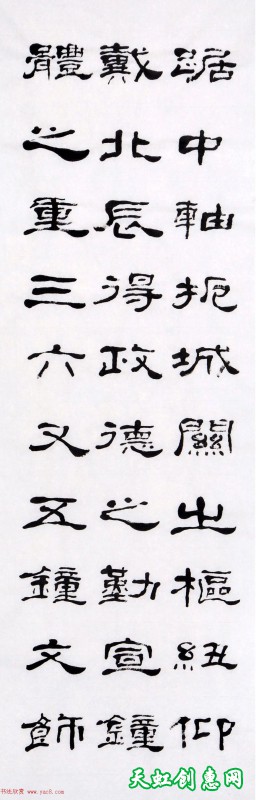 踞中軸扼城關之樞紐仰
戴北辰得政德之勤宣鐘
體之重三六又五鐘文飾
天虹创惠网
书法欣赏 www.yac8.com